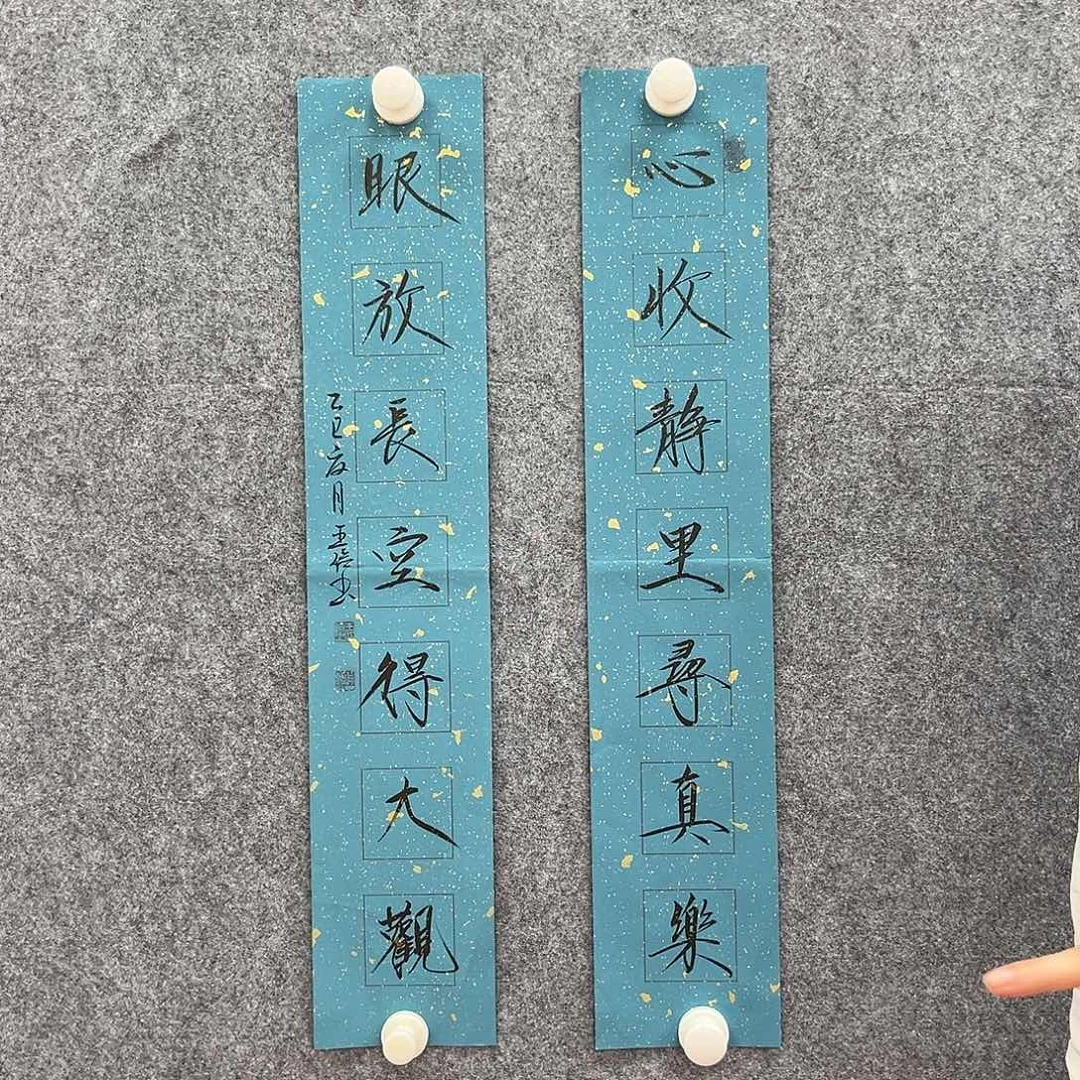 心收静里尋真樂
眼放長空得大觀
乙巳夏月王信书